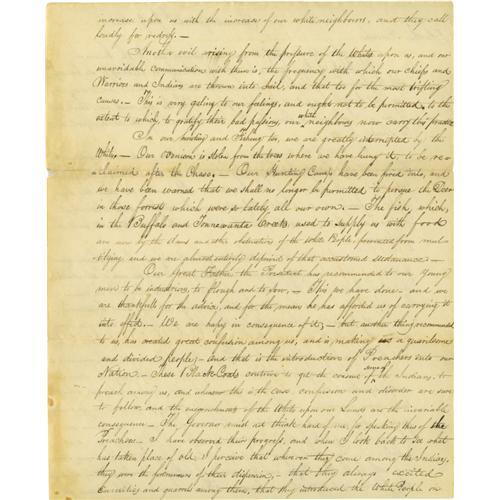 increase upon us with the increase of our white neighbours, and they call
loudly for redress. -
Another evil arising from the pressure of the Whites upon us, and our
unavoidable communication with them is, the frequency with which our Chiefs and
Warriors and Indians are thrown into Jail, and that too for the most trifling
causes. - This is very galing to our feelings, and ought not to be permitted to the
extent to which, to gratify their bad passions, our white neighbours now carry this practice
In our hunting and Fishing too, we are greatly interrupted by the
Whites - Our venison is stolen from the trees where we have hung it, to be re
claimed after the Chase. - Our Hunting Camps have been fired into, and
we have been warned that we shall no longer be permitted to persue the Deer
in those forests which were so lately all our own. - The fish, which,
in the Buffalo and Tonnewanta Creeks, used to supply us with food
are now by the Dams and other obstructions of the White People, prevented from mul
tiplying, and we are almost entirely deprived of that accustomed sustenance. -
Our Great Father the President has recommended to our Young
men to be industrious, to Plough and to Sow. - This we have done - and we
are thankful for the advice, and for the means he has afforded us of carrying it
into effect. - We are happy in consequence of it; - but another thing recommended
to us, has created great confusion among us, and is making us a quarrelsome
and divided people; - and that is the introduction of Preachers into our
Nation. - These Black Coats contrive to get the consent of some of the Indians, to
preach among us, and whenever this is the case, confusion and disorder are sure
to follow, and the encroachments of the Whites upon our Lands are the invariable
consequence - The Governor must not think hard of me for speaking thus of the
Preachers. - I have observed their progress, and when I look back to see what
has taken place of old, I perceive that whenever they came among the Indians,
they were the forerunners of their dispersion, - that they always excited
Enmities and quarrels among them, that they introduced the White People on